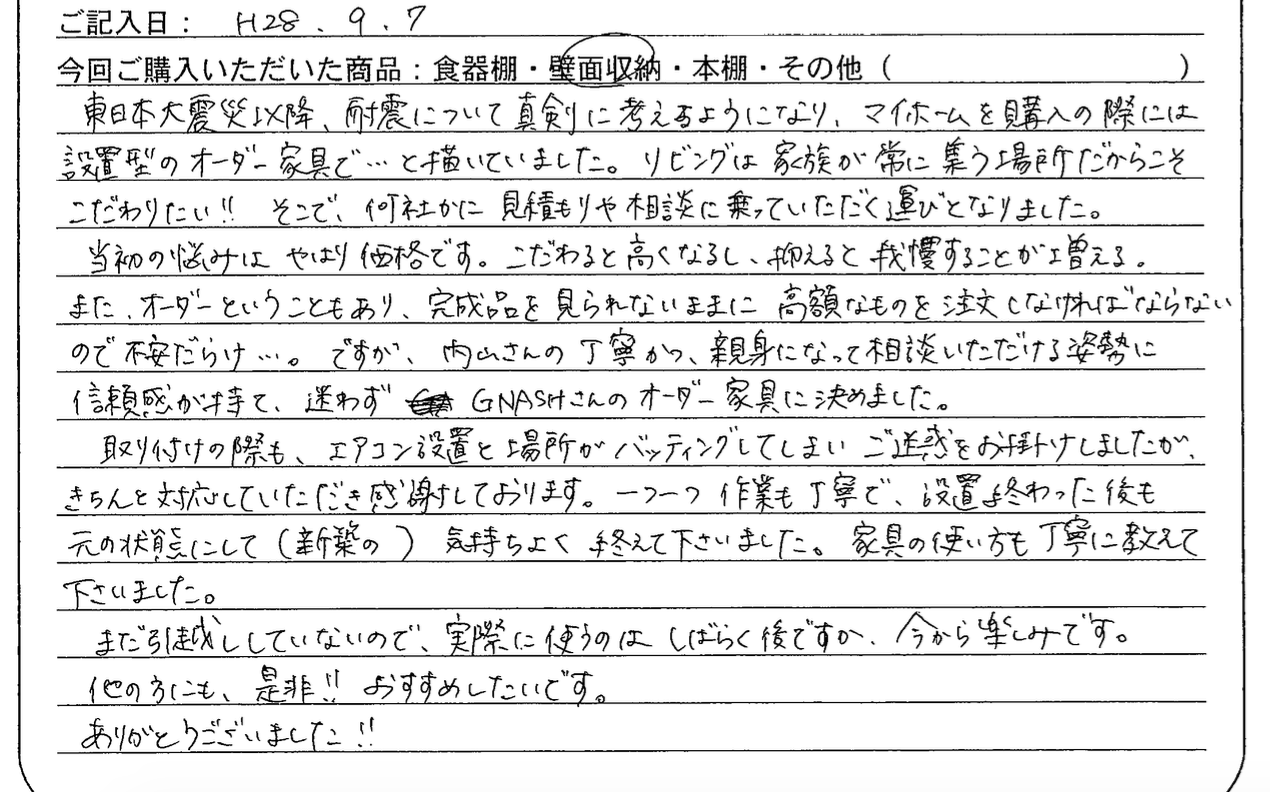 ご記入日： H28．9．7
今回ご購入いただいた商品：食器棚・壁面収納・本棚・その他（　　　　　　　　　　）
東日本大震災以降、耐震について真剣に考えるようになり、マイホームを購入の際には
設置型のオーダー家具で…と描いていました。リビングは家族が常に集う場所だからこそ
こだわりたい!! そこで、何社かに見積もりや相談に乗っていただく運びとなりました。
当初の悩みはやはり価格です。こだわると高くなるし、抑えると我慢することが増える。
また、オーダーということもあり、完成品を見られないままに高額なものを注文しなければならない
ので不安だらけ…。ですが、内山さんの丁寧かつ、親身になって相談いただける姿勢に
信頼感が持て、迷わず GNASHさんのオーダー家具に決めました。
取り付けの際も、エアコン設置と場所がバッティングしてしまいご迷惑をお掛けしましたが、
きちんと対応していただき感謝しております。一つ一つ作業も丁寧で、設置終わった後も
元の状態にして（新築の）気持ちよく終えて下さいました。家具の使い方も丁寧に教えて
下さいました。
まだ引越ししていないので、実際に使うのはしばらく後ですが、今から楽しみです。
他の方にも、是非!! おすすめしたいです。
ありがとうございました!!